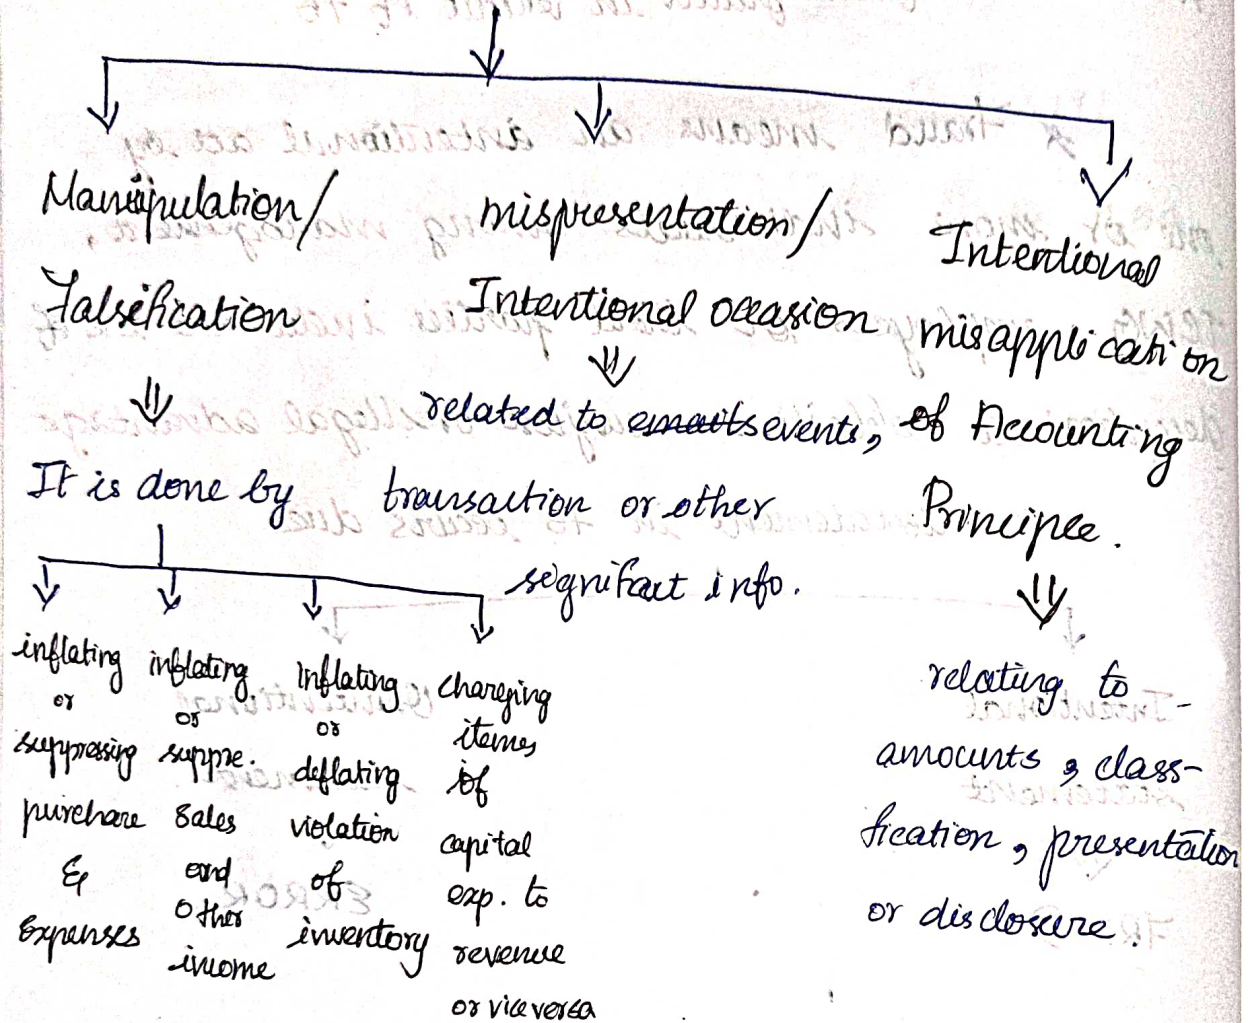 Manipulation/
Falsification
It is done by
inflating
or
suppressing
purchase
&
Expenses
inflating
or
suppre.
Sales
and
Other
income
Inflating
or
deflating
violation
of
inventory
chareging
items
of
capital
exp. to
revenue
or vice versa
mispresentation/
Intentional occasion
related to events,
transaction or other
significant info.
Intentional
misapplication
of Accounting
Principle.
relating to
amounts, class-
fication, presentation
or disclosure.